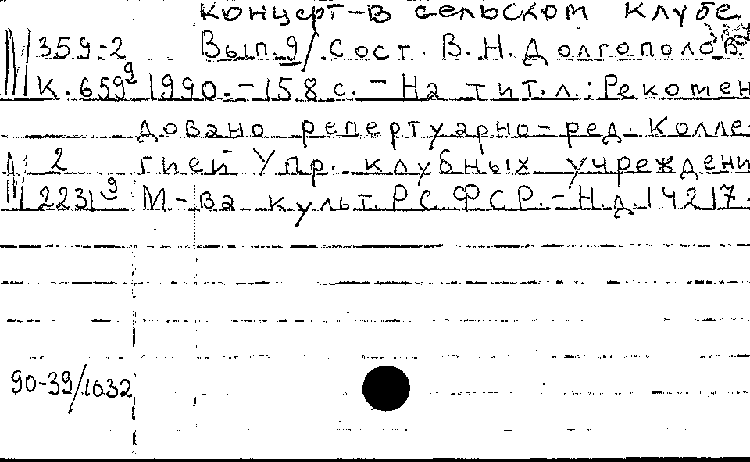 концерт-в сельском клубе
359-2 Вып.9/Сост. В.Н.Долгополов.
К.659⁹ 1990.-158 с. - На тит.л.: Рекомен
довано репертуарно-ред. Колле
2 гией Упр. клубных учреждени
2231⁹ М-ва культ.РСФСР.-Н.д.14217.
90-39/1032